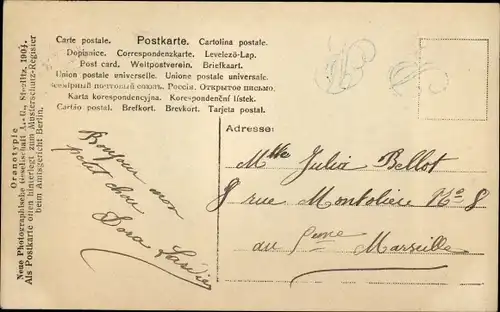 Carte postale. Postkarte. Cartolina postale.
Dopisnice. Correspondenzkarte. Levelező-Lap.
Post card. Weltpostverein. Briefkaart.
Union postale universelle. Unione postale universale.
Всемірный почтовый союзъ. Россія. Открытое письмо.
Karta korespondencyjna. Korespondenční lístek.
Cartão postal. Brefkort. Brevkort. Tarjeta postal.
Oranotypie
Neue Photographische Gesellschaft A.-G., Steglitz, 1904.
Als Postkarte offen hinterlegt zum Musterschutz-Register
beim Amtsgericht Berlin.
Bonjour mon
petit chou
Dora
Adresse:
Mlle Julia Bellot
8 rue Montolieu No 8
au 5eme
Marseille